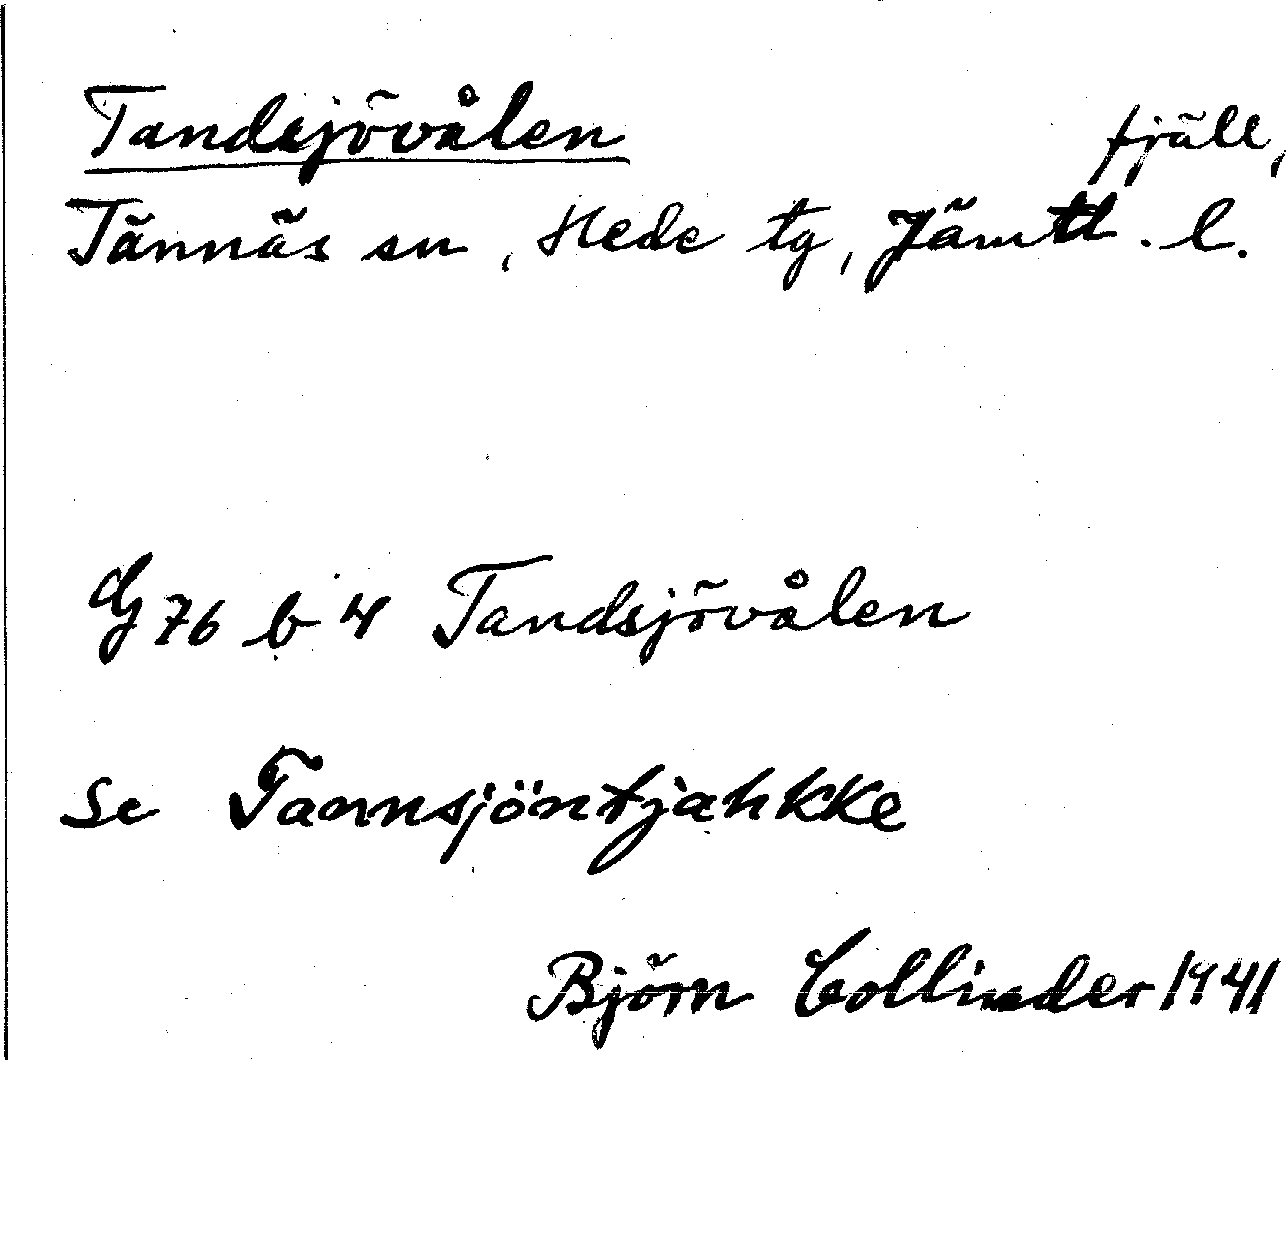 Tandsjövålen fjäll,
Tännäs sn, Hede tg, Jämtl. l.
G 76 b 4 Tandsjövålen
Se Tannsjöntjahkke
Björn Collinder 1941